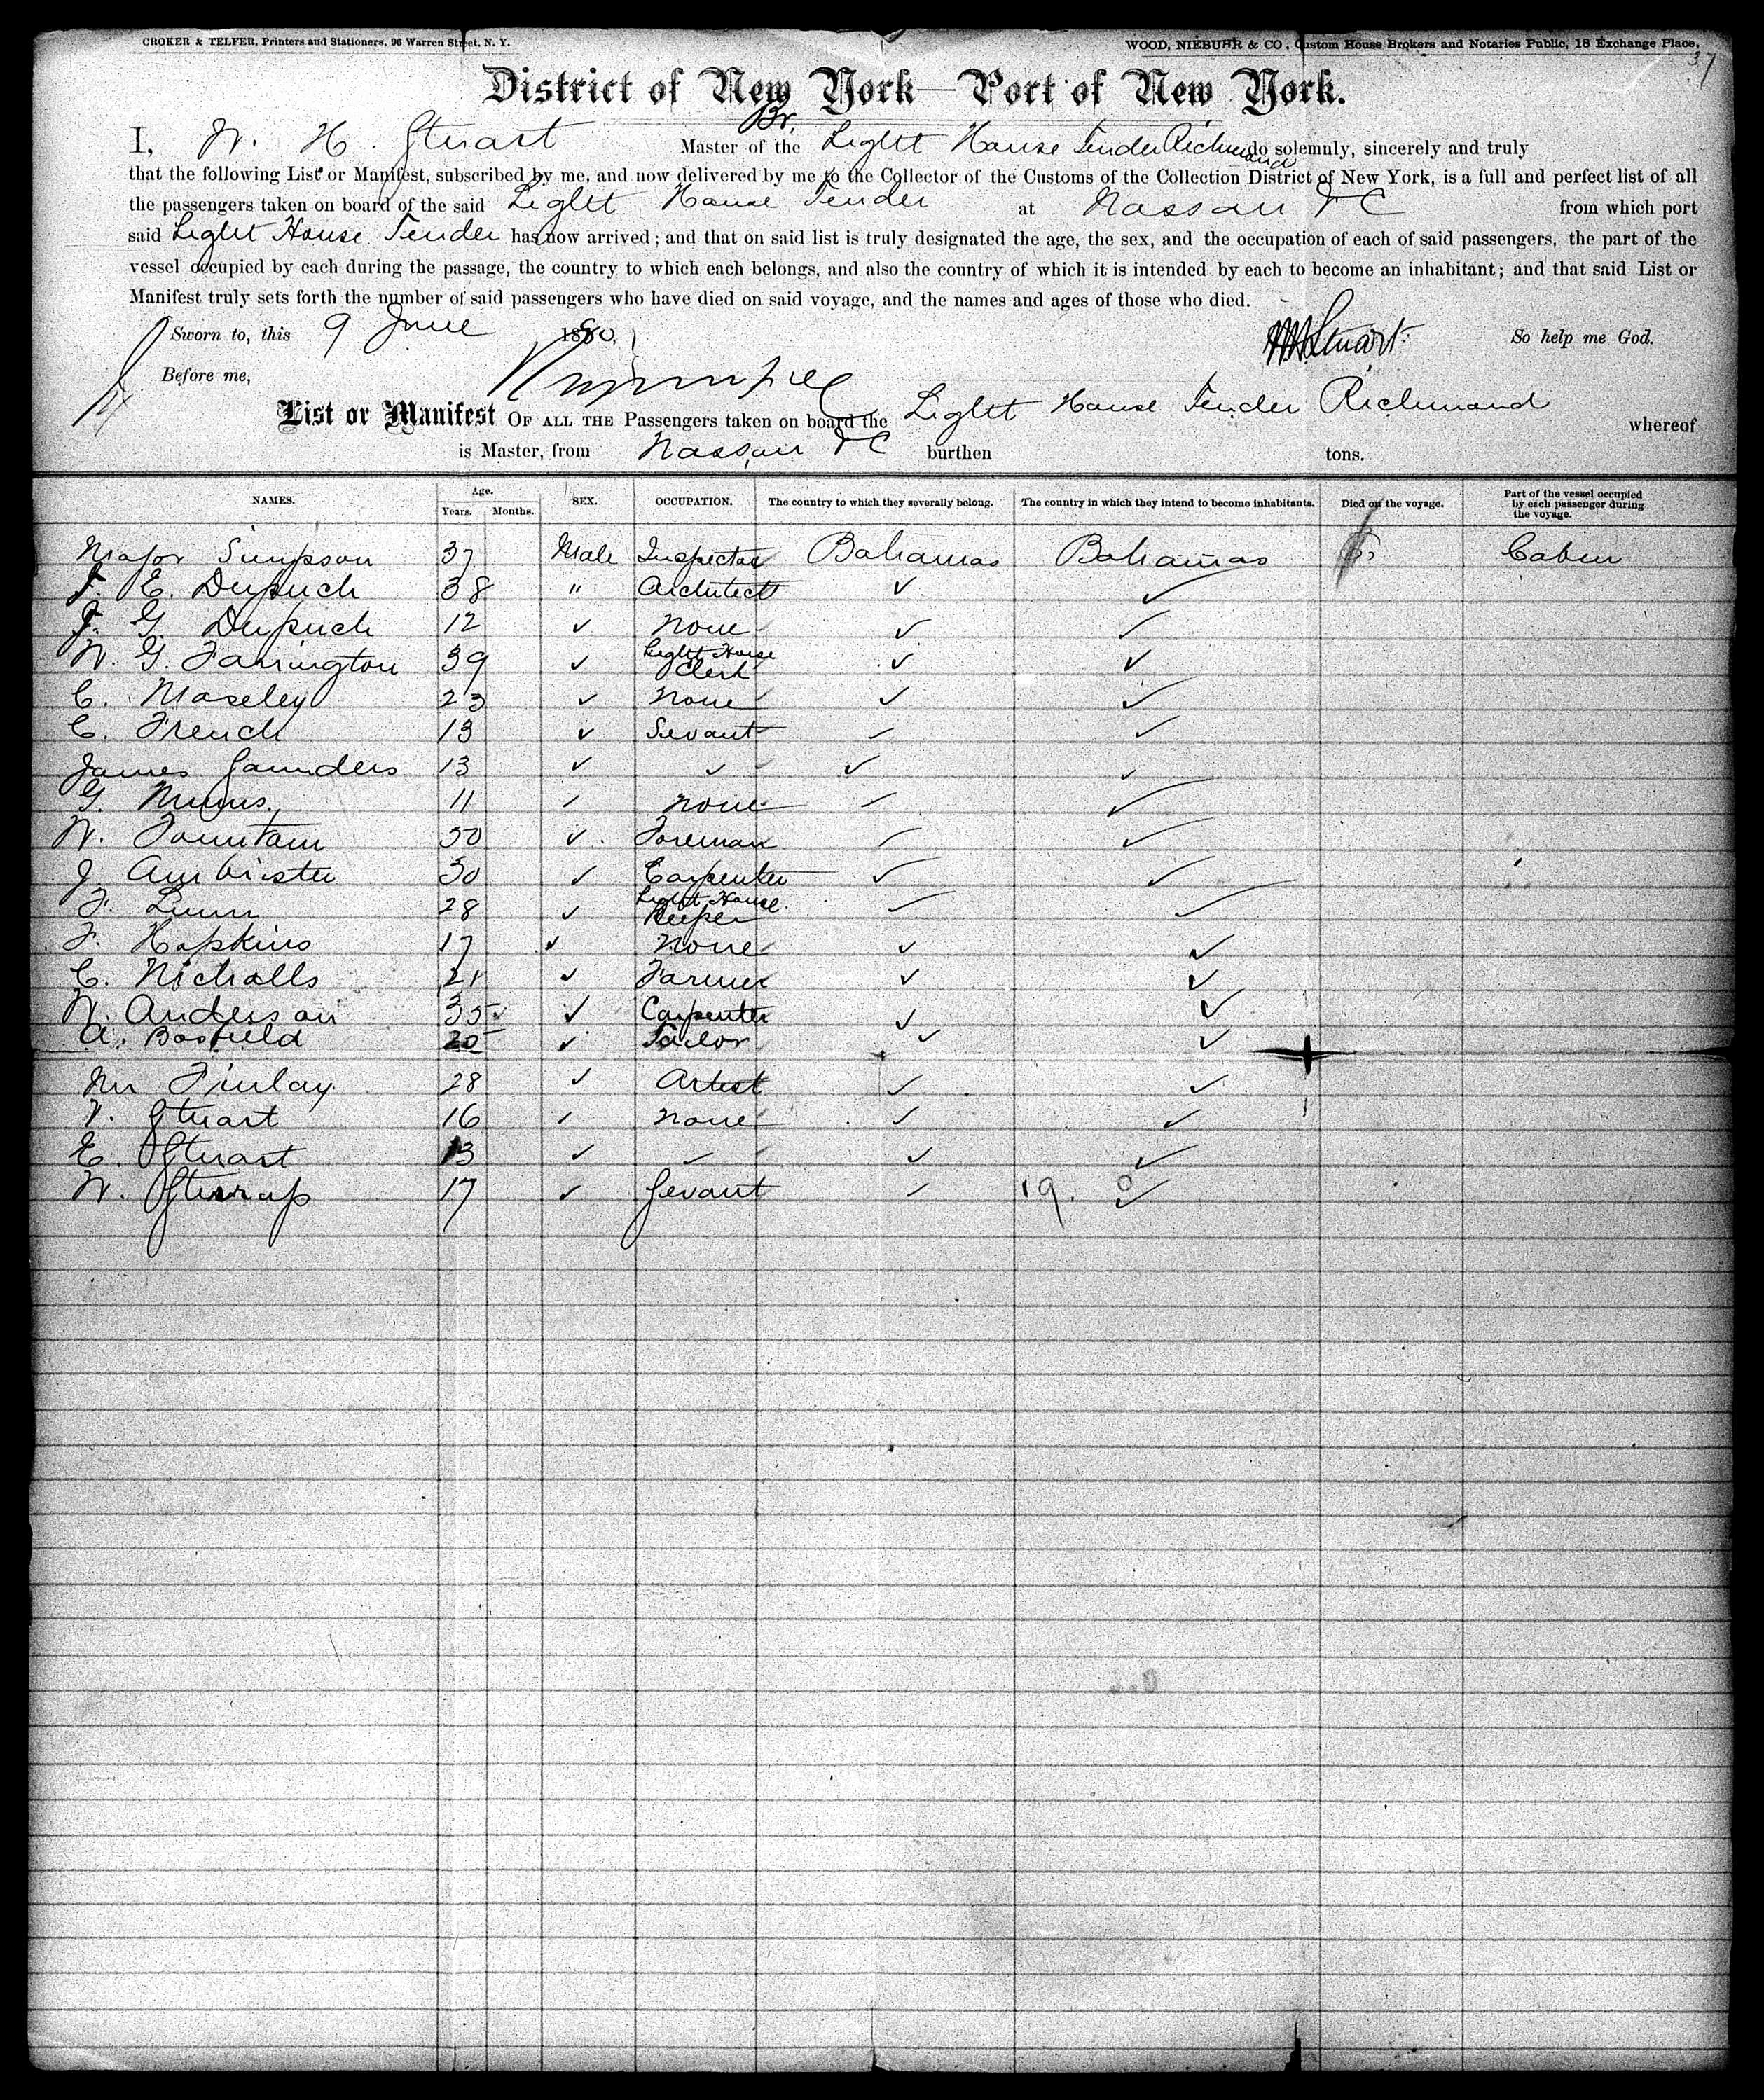 CROKER & TELFER, Printers and Stationers, 96 Warren Street, N. Y. WOOD, NIEBUHR & CO., Custom House Brokers and Notaries Public, 18 Exchange Place.
37
District of New York—Port of New York.
Br.
I, W. H. Stuart Master of the Light House Tender Richmond do solemnly, sincerely and truly
that the following List or Manifest, subscribed by me, and now delivered by me to the Collector of the Customs of the Collection District of New York, is a full and perfect list of all
the passengers taken on board of the said Light House Tender at Nassau from which port
said Light House Tender has now arrived; and that on said list is truly designated the age, the sex, and the occupation of each of said passengers, the part of the
vessel occupied by each during the passage, the country to which each belongs, and also the country of which it is intended by each to become an inhabitant; and that said List or
Manifest truly sets forth the number of said passengers who have died on said voyage, and the names and ages of those who died.
Sworn to, this 9 June 1880, WHStuart So help me God.
Before me,
List or Manifest OF ALL THE Passengers taken on board the Light House Tender Richmond whereof
is Master, from Nassau burthen tons.
NAMES. Age. Years. Months. SEX. OCCUPATION. The country to which they severally belong. The country in which they intend to become inhabitants. Died on the voyage. Part of the vessel occupied by each passenger during the voyage.
Major Simpson 37 Male Inspector Bahamas Bahamas Cabin
J. E. Dupuch 38 " Architect ✓ ✓
J. G. Dupuch 12 ✓ None ✓ ✓
W. G. Farrington 39 ✓ Light House Clerk ✓ ✓
C. Moseley 23 ✓ None ✓ ✓
C. French 13 ✓ Sevant ✓ ✓
James Saunders 13 ✓ ✓ ✓ ✓
G. 11 ✓ None ✓ ✓
W. Fountain 50 ✓ Foreman ✓ ✓
J Ambrister 30 ✓ Carpenter ✓ ✓
F. Lunn 28 ✓ Light House Keeper ✓ ✓
F. Hopkins 17 ✓ None ✓ ✓
C. Nicholls 21 ✓ Farmer ✓ ✓
W. Anderson 35 ✓ Carpenter ✓ ✓
A. Bosfield 20 ✓ Tailor ✓ ✓
Mr Finlay 28 ✓ Artist ✓ ✓
V. Stuart 16 ✓ None ✓ ✓
E. Stuart 13 ✓ ✓ ✓ ✓
W. Sturrup 17 ✓ Sevant ✓ 19. 0 ✓